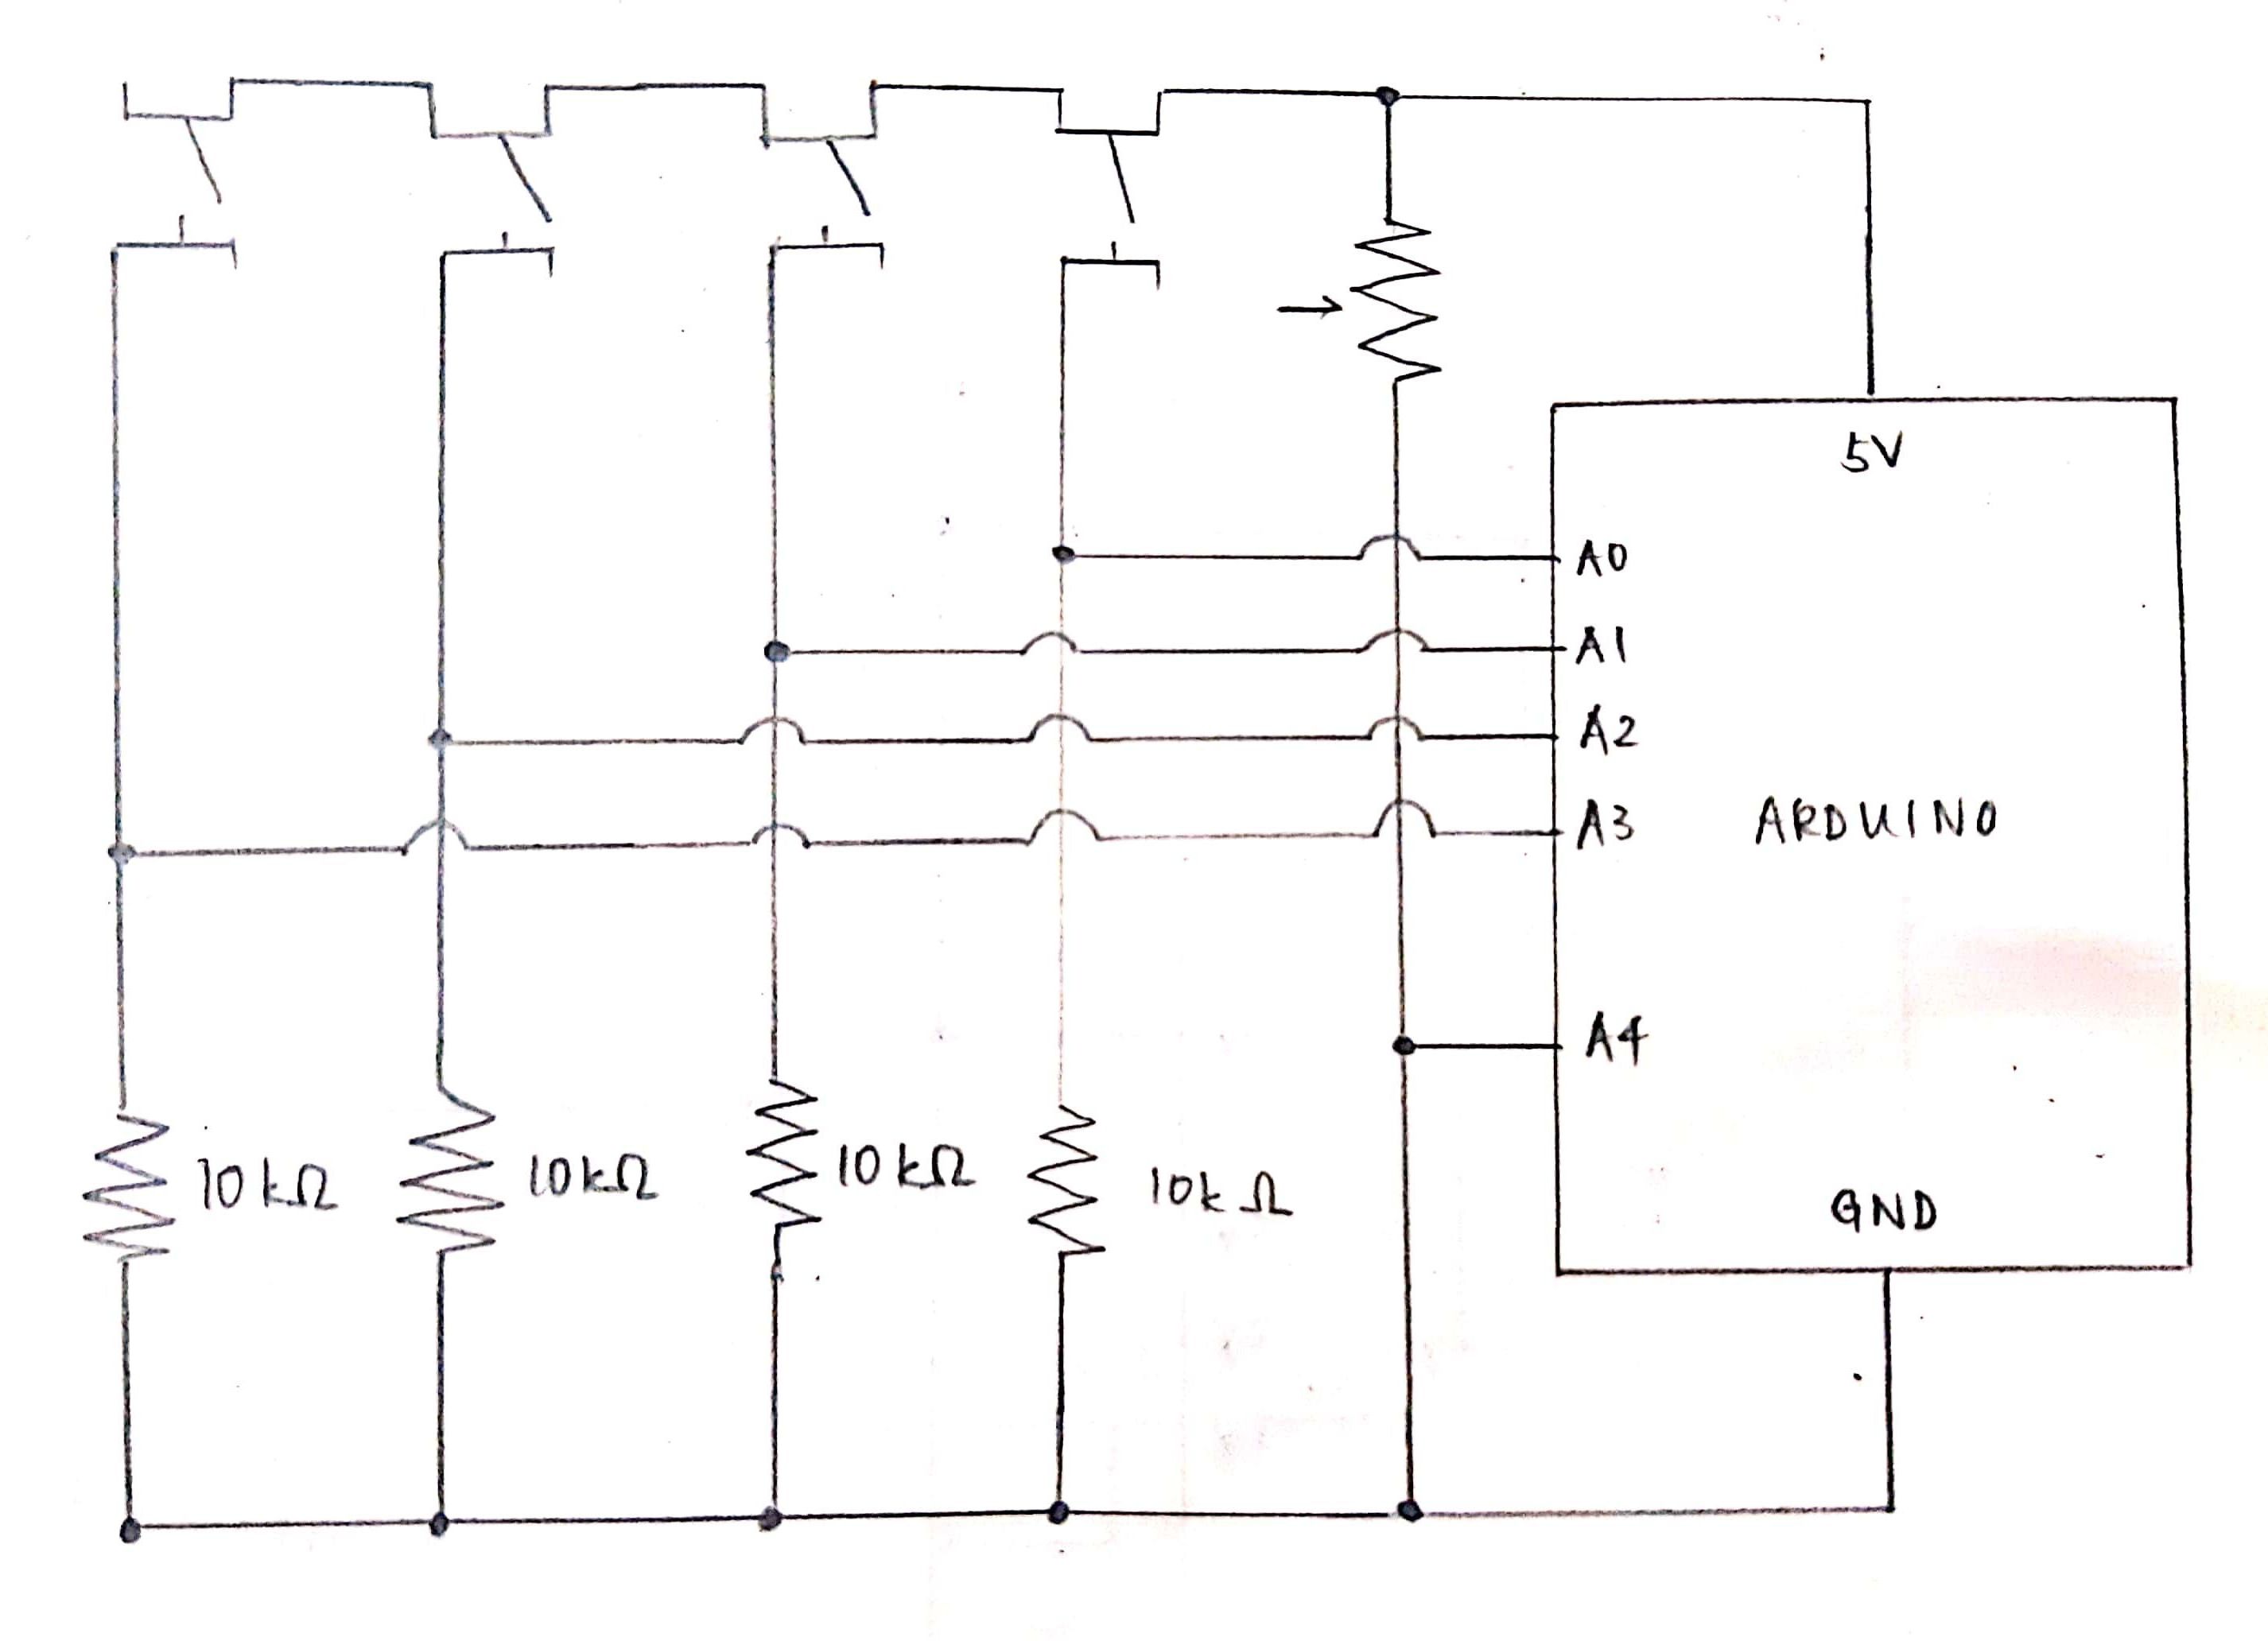 5V
A0
A1
A2
A3
ARDUINO
A4
10kΩ
10kΩ
10kΩ
10kΩ
GND